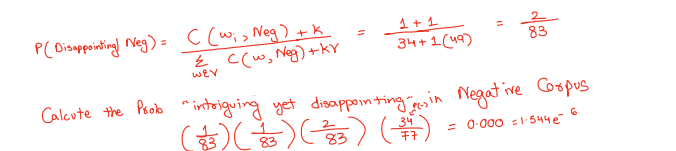 P(Disappointing| Neg) = C(wi, Neg) + k / Σ w∈V C(w, Neg) + kV = 1 + 1 / 34 + 1(49) = 2 / 83
Calcute the Prob "intriguing yet disappointing" in Negative Corpus
P(-)
(1/83) (1/83) (2/83) (34/77) = 0.000 = 1.544e^-6